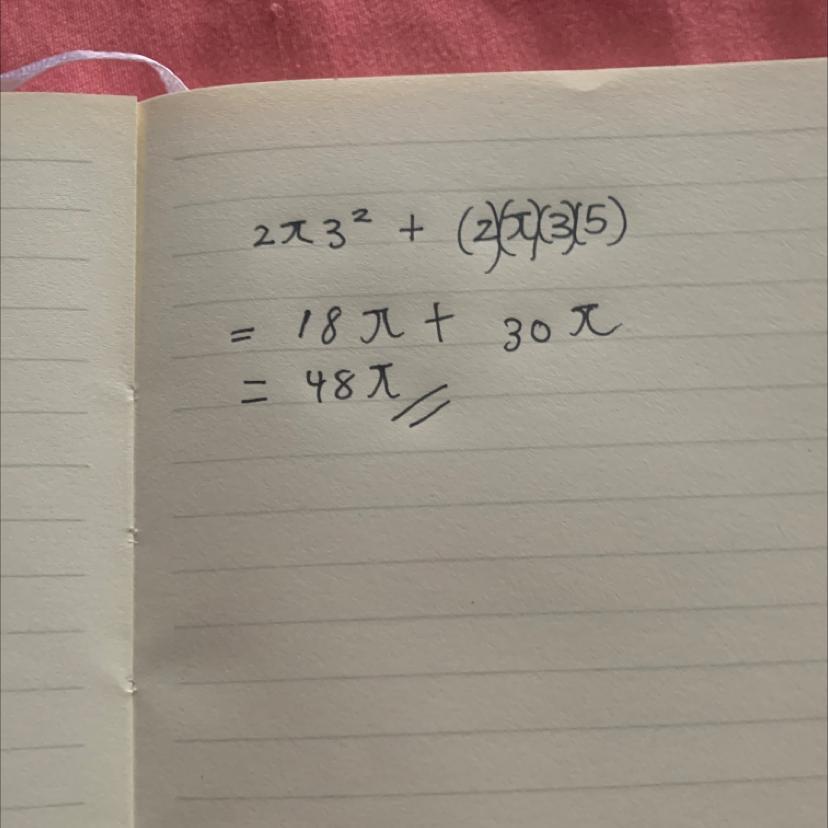 2π3² + (2)(π)(3)(5)
= 18π + 30π
= 48π